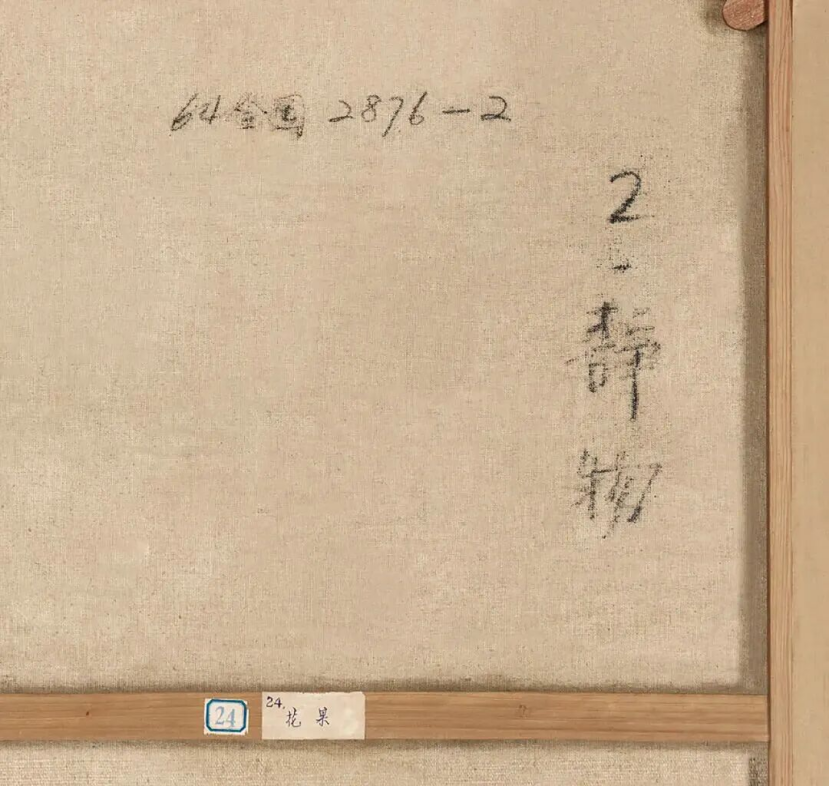 64全国 2876-2
2
·
静
物
24
24.
花果